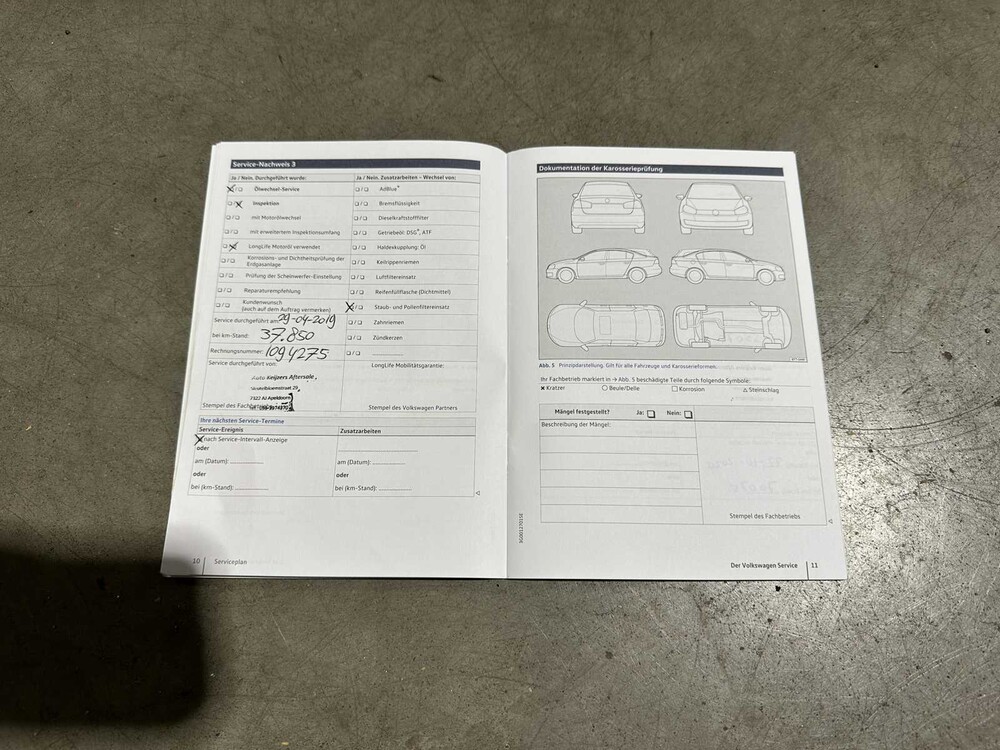 Service-Nachweis 3
Ja / Nein. Durchgeführt wurde:
☒/☐ Ölwechsel-Service
☐/☒ Inspektion
☐/☐ mit Motorölwechsel
☐/☐ mit erweitertem Inspektionsumfang
☐/☒ LongLife Motoröl verwendet
☐/☐ Korrosions- und Dichtheitsprüfung der
Erdgasanlage
☐/☐ Prüfung der Scheinwerfer-Einstellung
☐/☐ Reparaturempfehlung
☐/☐ Kundenwunsch
(auch auf dem Auftrag vermerken)
Service durchgeführt am: 29-04-2019
bei km-Stand: 37.850
Rechnungsnummer: 1094275
Service durchgeführt von:
Auto Keijzers Aftersale,
7322 AJ Apeldoorn
Stempel des
Ja / Nein. Zusatzarbeiten – Wechsel von:
☐/☐ AdBlue®
☐/☐ Bremsflüssigkeit
☐/☐ Dieselkraftstofffilter
☐/☐ Getriebeöl: DSG®, ATF
☐/☐ Haldexkupplung: Öl
☐/☐ Keilrippenriemen
☐/☐ Luftfiltereinsatz
☐/☐ Reifenfüllflasche (Dichtmittel)
☒/☐ Staub- und Pollenfiltereinsatz
☐/☐ Zahnriemen
☐/☐ Zündkerzen
☐/☐
LongLife Mobilitätsgarantie:
Stempel des Volkswagen Partners
Ihre nächsten Service-Termine
Service-Ereignis
☒ nach Service-Intervall-Anzeige
oder
am (Datum):
oder
bei (km-Stand):
Zusatzarbeiten
am (Datum):
oder
bei (km-Stand):
10 Serviceplan
Dokumentation der Karosserieprüfung
Abb. 5 Prinzipdarstellung. Gilt für alle Fahrzeuge und Karosserieformen.
Ihr Fachbetrieb markiert in → Abb. 5 beschädigte Teile durch folgende Symbole:
✖ Kratzer ○ Beule/Delle □ Korrosion △ Steinschlag
Mängel festgestellt? Ja: ☐ Nein: ☐
Beschreibung der Mängel:
Stempel des Fachbetriebs
3G0012701SE
Der Volkswagen Service 11